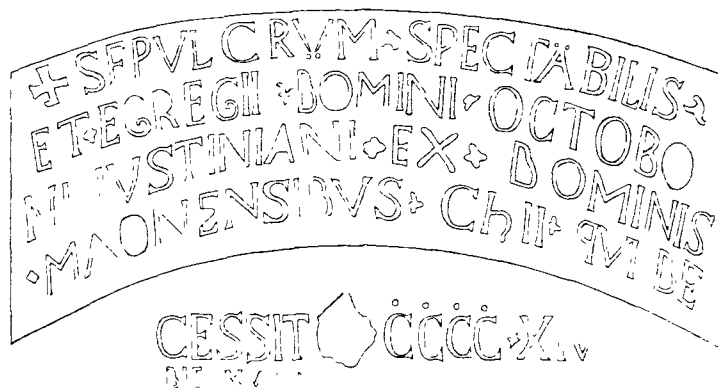 ✠ SEPVLCRVM SPECTABILIS
ET EGREGII DOMINI OCTOBO
NI IVSTINIANI EX DOMINIS
MAONENSIBVS CHII QVI DE
CESSIT CCCC